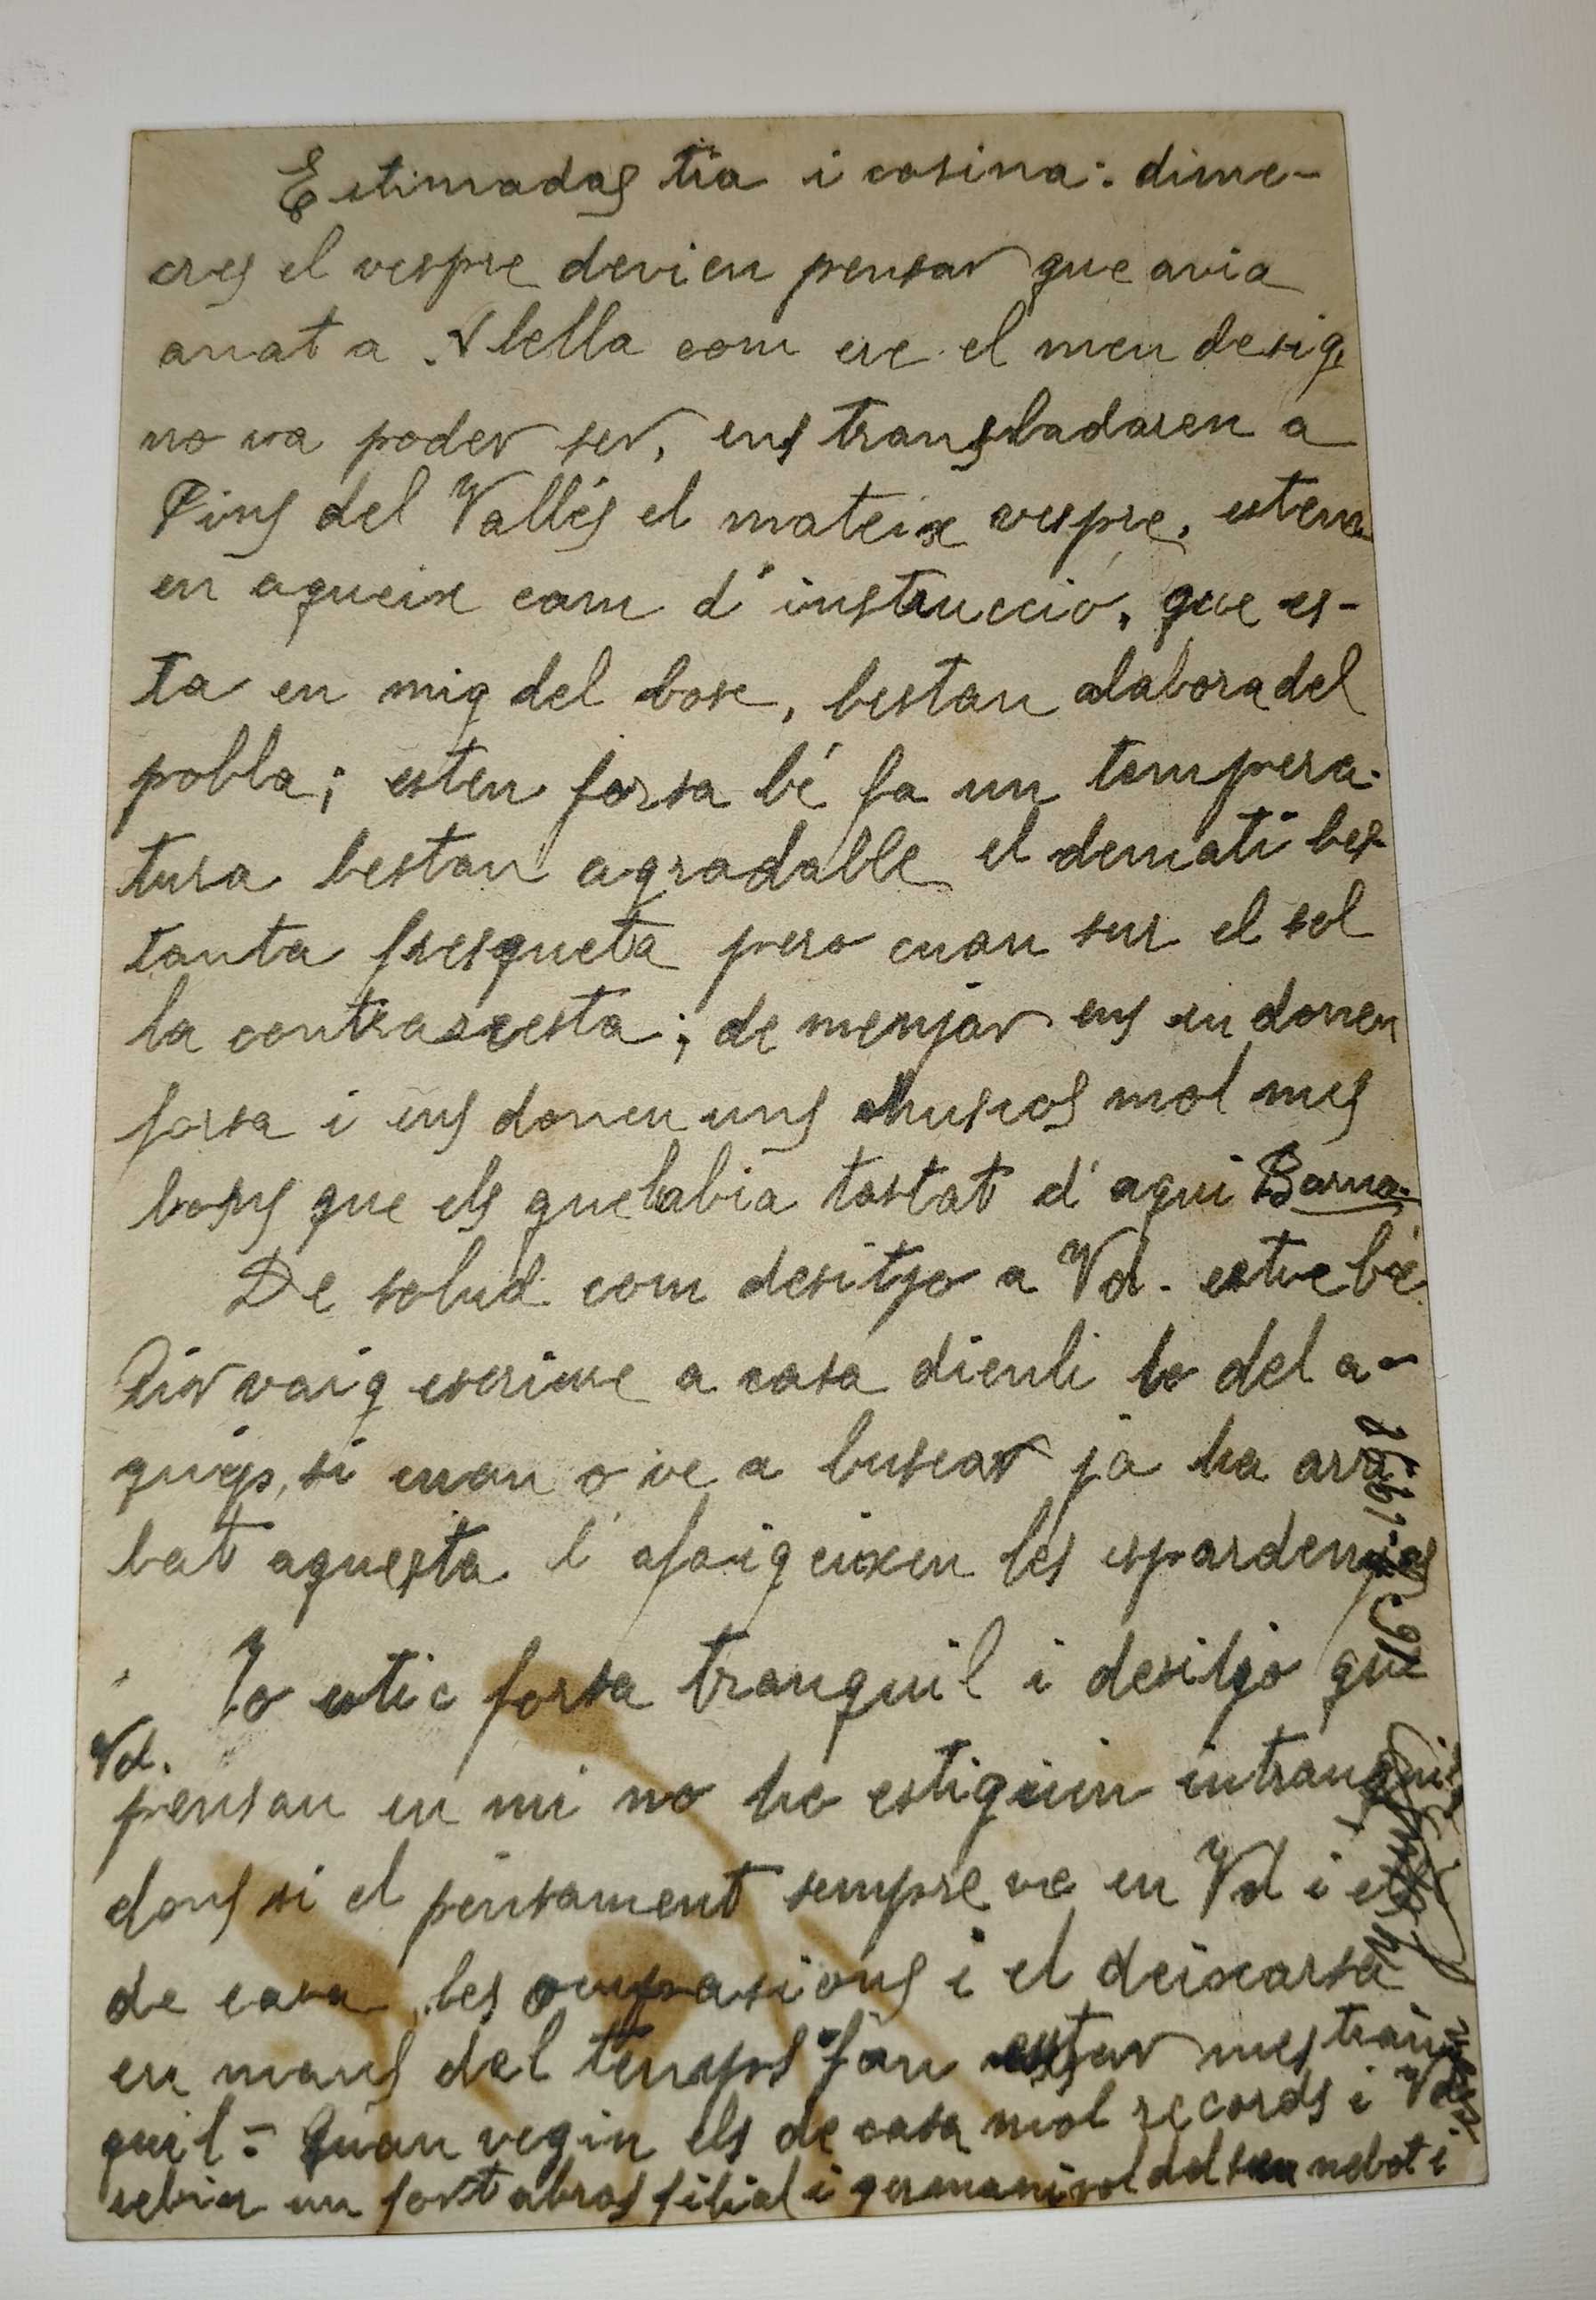 Estimadas tia i cosina: dime-
cres el vespre devien pensar que avia
anat a Alella com ere el meu desig,
no va poder ser, ens transladaren a
Pins del Vallés el mateix vespre, estem
en aqueix cam d'instrucció, que es-
ta en mig del bosc, bestan alabora del
pobla; esten forsa bé fa un tempera-
tura bestan agradable el demati bes-
tanta fresqueta pero cuan sur el sol
la contraresta; de menjar ens en donen
forsa i ens donen uns chuscos mol mes
bons que els que habia tastat d'aqui Barna.
De salud com desitjo a Vd. estic bé
Air vaig escriure a casa dienli lo del a-
quip, si cuan o ve a buscar ja ha arri
bat aquesta l'afaigeixen les espardenyas
Jo estic forsa tranquil i desitjo que
Vd.
pensan en mi no ho estiguin intranquils
dons si el pensament sempre ve en Vd i els
de casa, les ocupasions i el deixarsa
en mans del temps fan estar mes tran
quil = Quan vegin els de casa mol records i Vd
rebin un fort abras filial i germanivol del seu nebot i